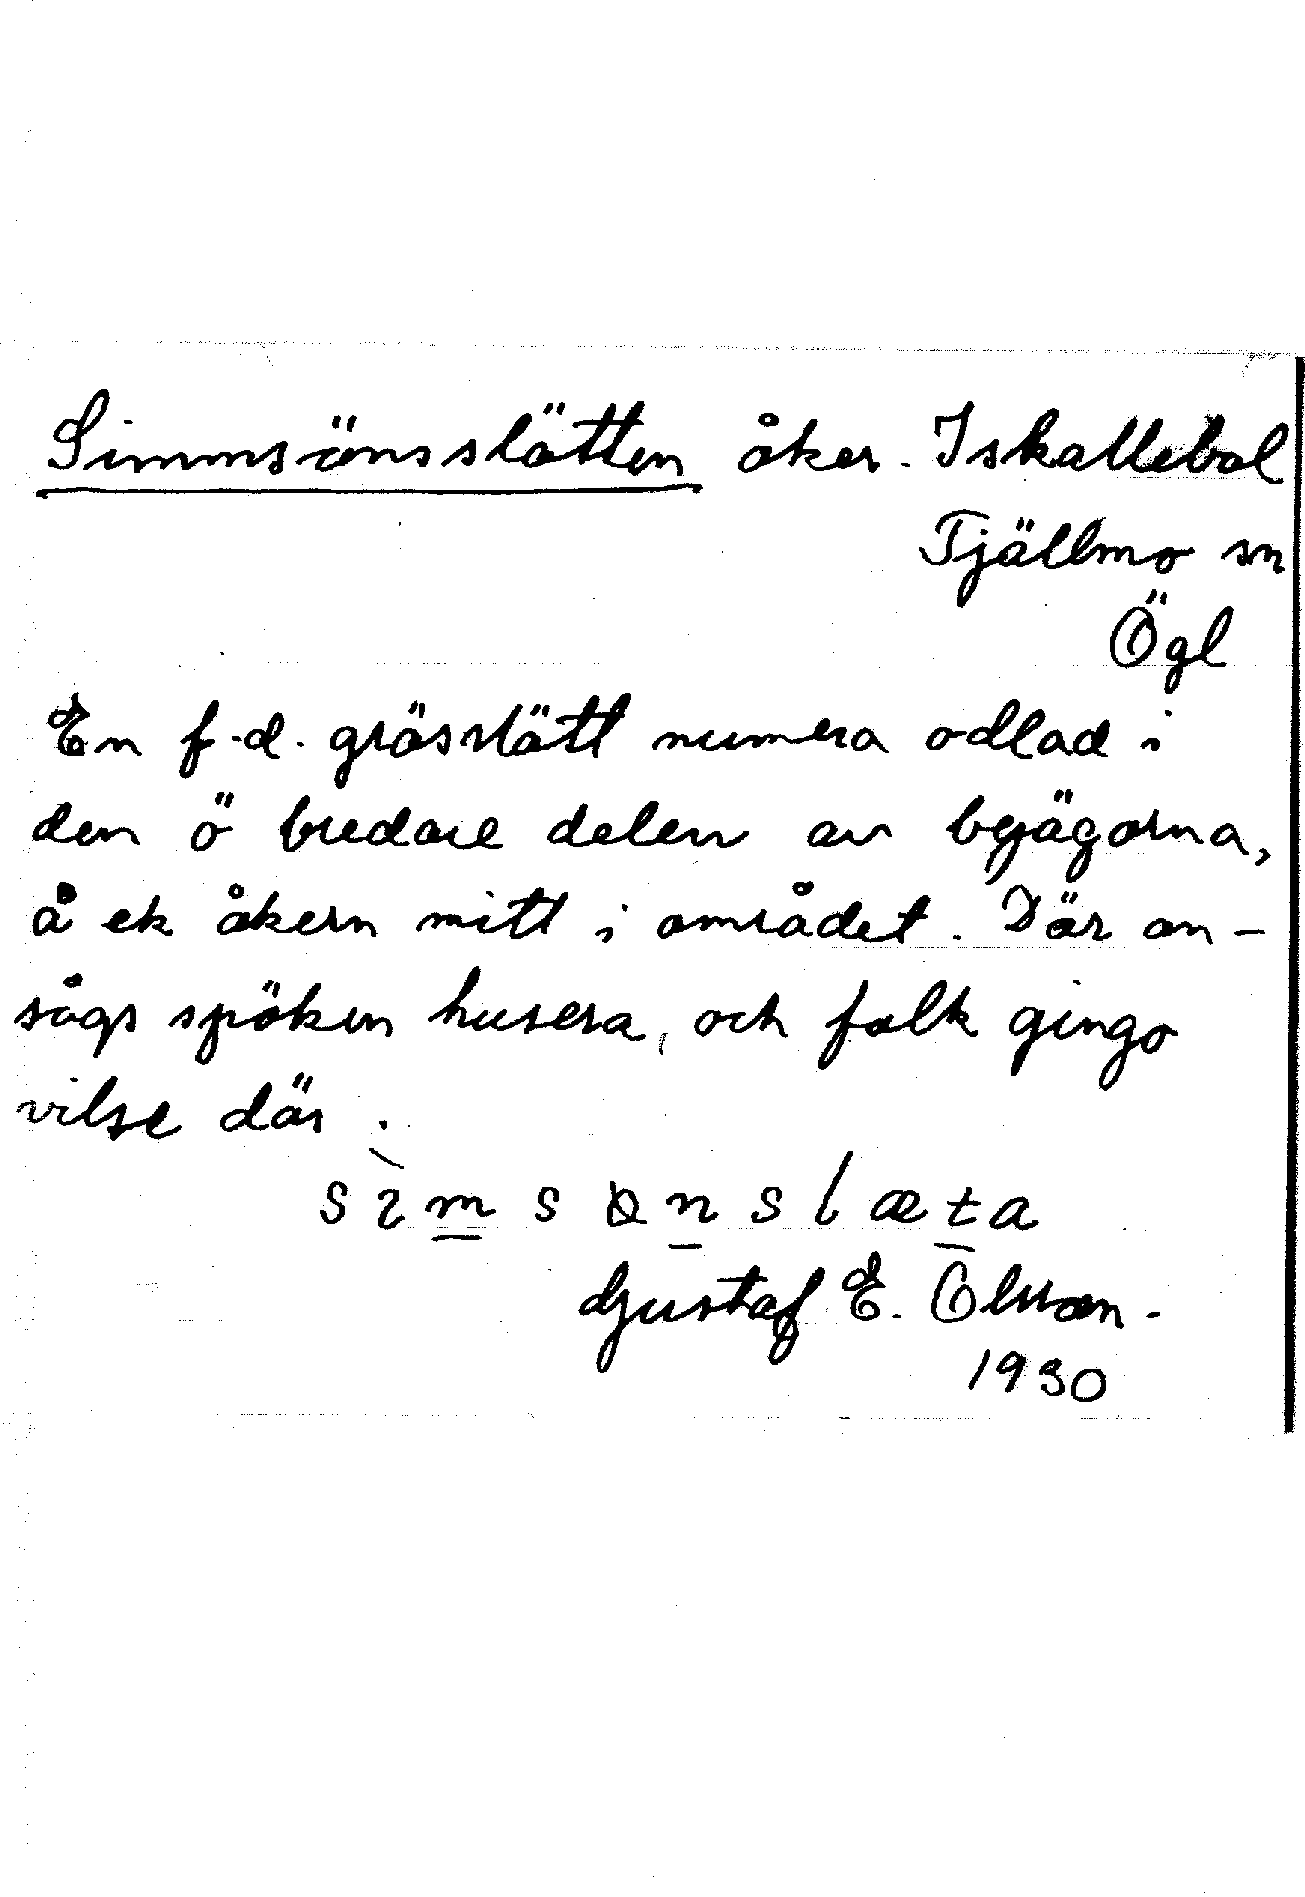 Simmsönsslätten åker. Iskallebol
Tjällmo sn
Ögl
En f.d. grässlätt numera odlad i
den ö bredare delen av byägorna,
å ek åkern mitt i området. Där an-
sågs spöken husera, och folk gingo
vilse där.
Gustaf E. Olsson.
1930